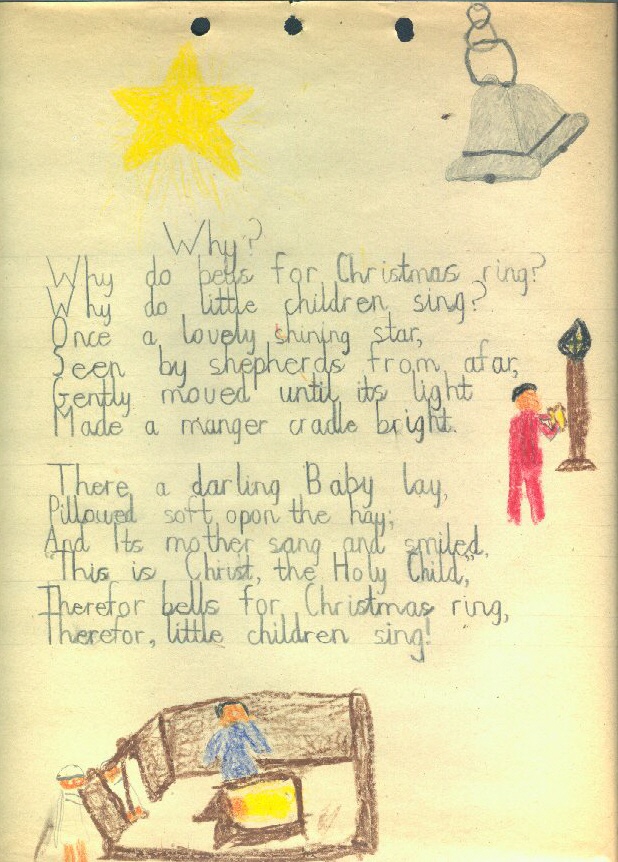 Why?
Why do bells for Christmas ring?
Why do little children sing?
Once a lovely shining star,
Seen by shepherds from afar,
Gently moved until its light
Made a manger cradle bright.
There a darling Baby lay,
Pillowed soft opon the hay;
And Its mother sang and smiled,
"This is Christ, the Holy Child,"
Therefor bells for Christmas ring,
Therefor, little children sing!